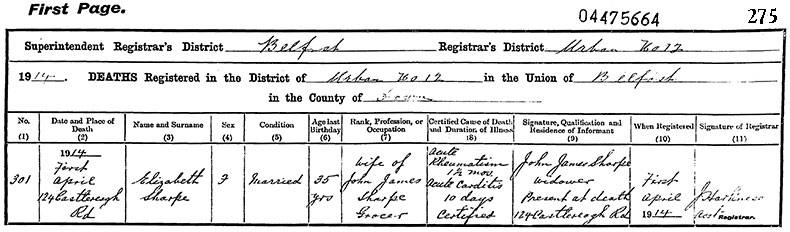 First Page.
04475664
275
Superintendent Registrar's District Belfast Registrar's District Urban No 12
1914. DEATHS Registered in the District of Urban No 12 in the Union of Belfast
in the County of Down
No. (1)
Date and Place of Death (2)
Name and Surname (3)
Sex (4)
Condition (5)
Age last Birthday (6)
Rank, Profession, or Occupation (7)
Certified Cause of Death and Duration of Illness (8)
Signature, Qualification and Residence of Informant (9)
When Registered (10)
Signature of Registrar (11)
301
1914
First
April
124 Castlereagh
Rd
Elizabeth
Sharpe
F
Married
35
yrs
Wife of
John James
Sharpe
Grocer
Acute
Rheumatism
1½ mos.
Acute Carditis
10 days
Certified
John James Sharpe
Widower
Present at death
124 Castlereagh Rd
First
April
1914
J Harkness
Asst Registrar.